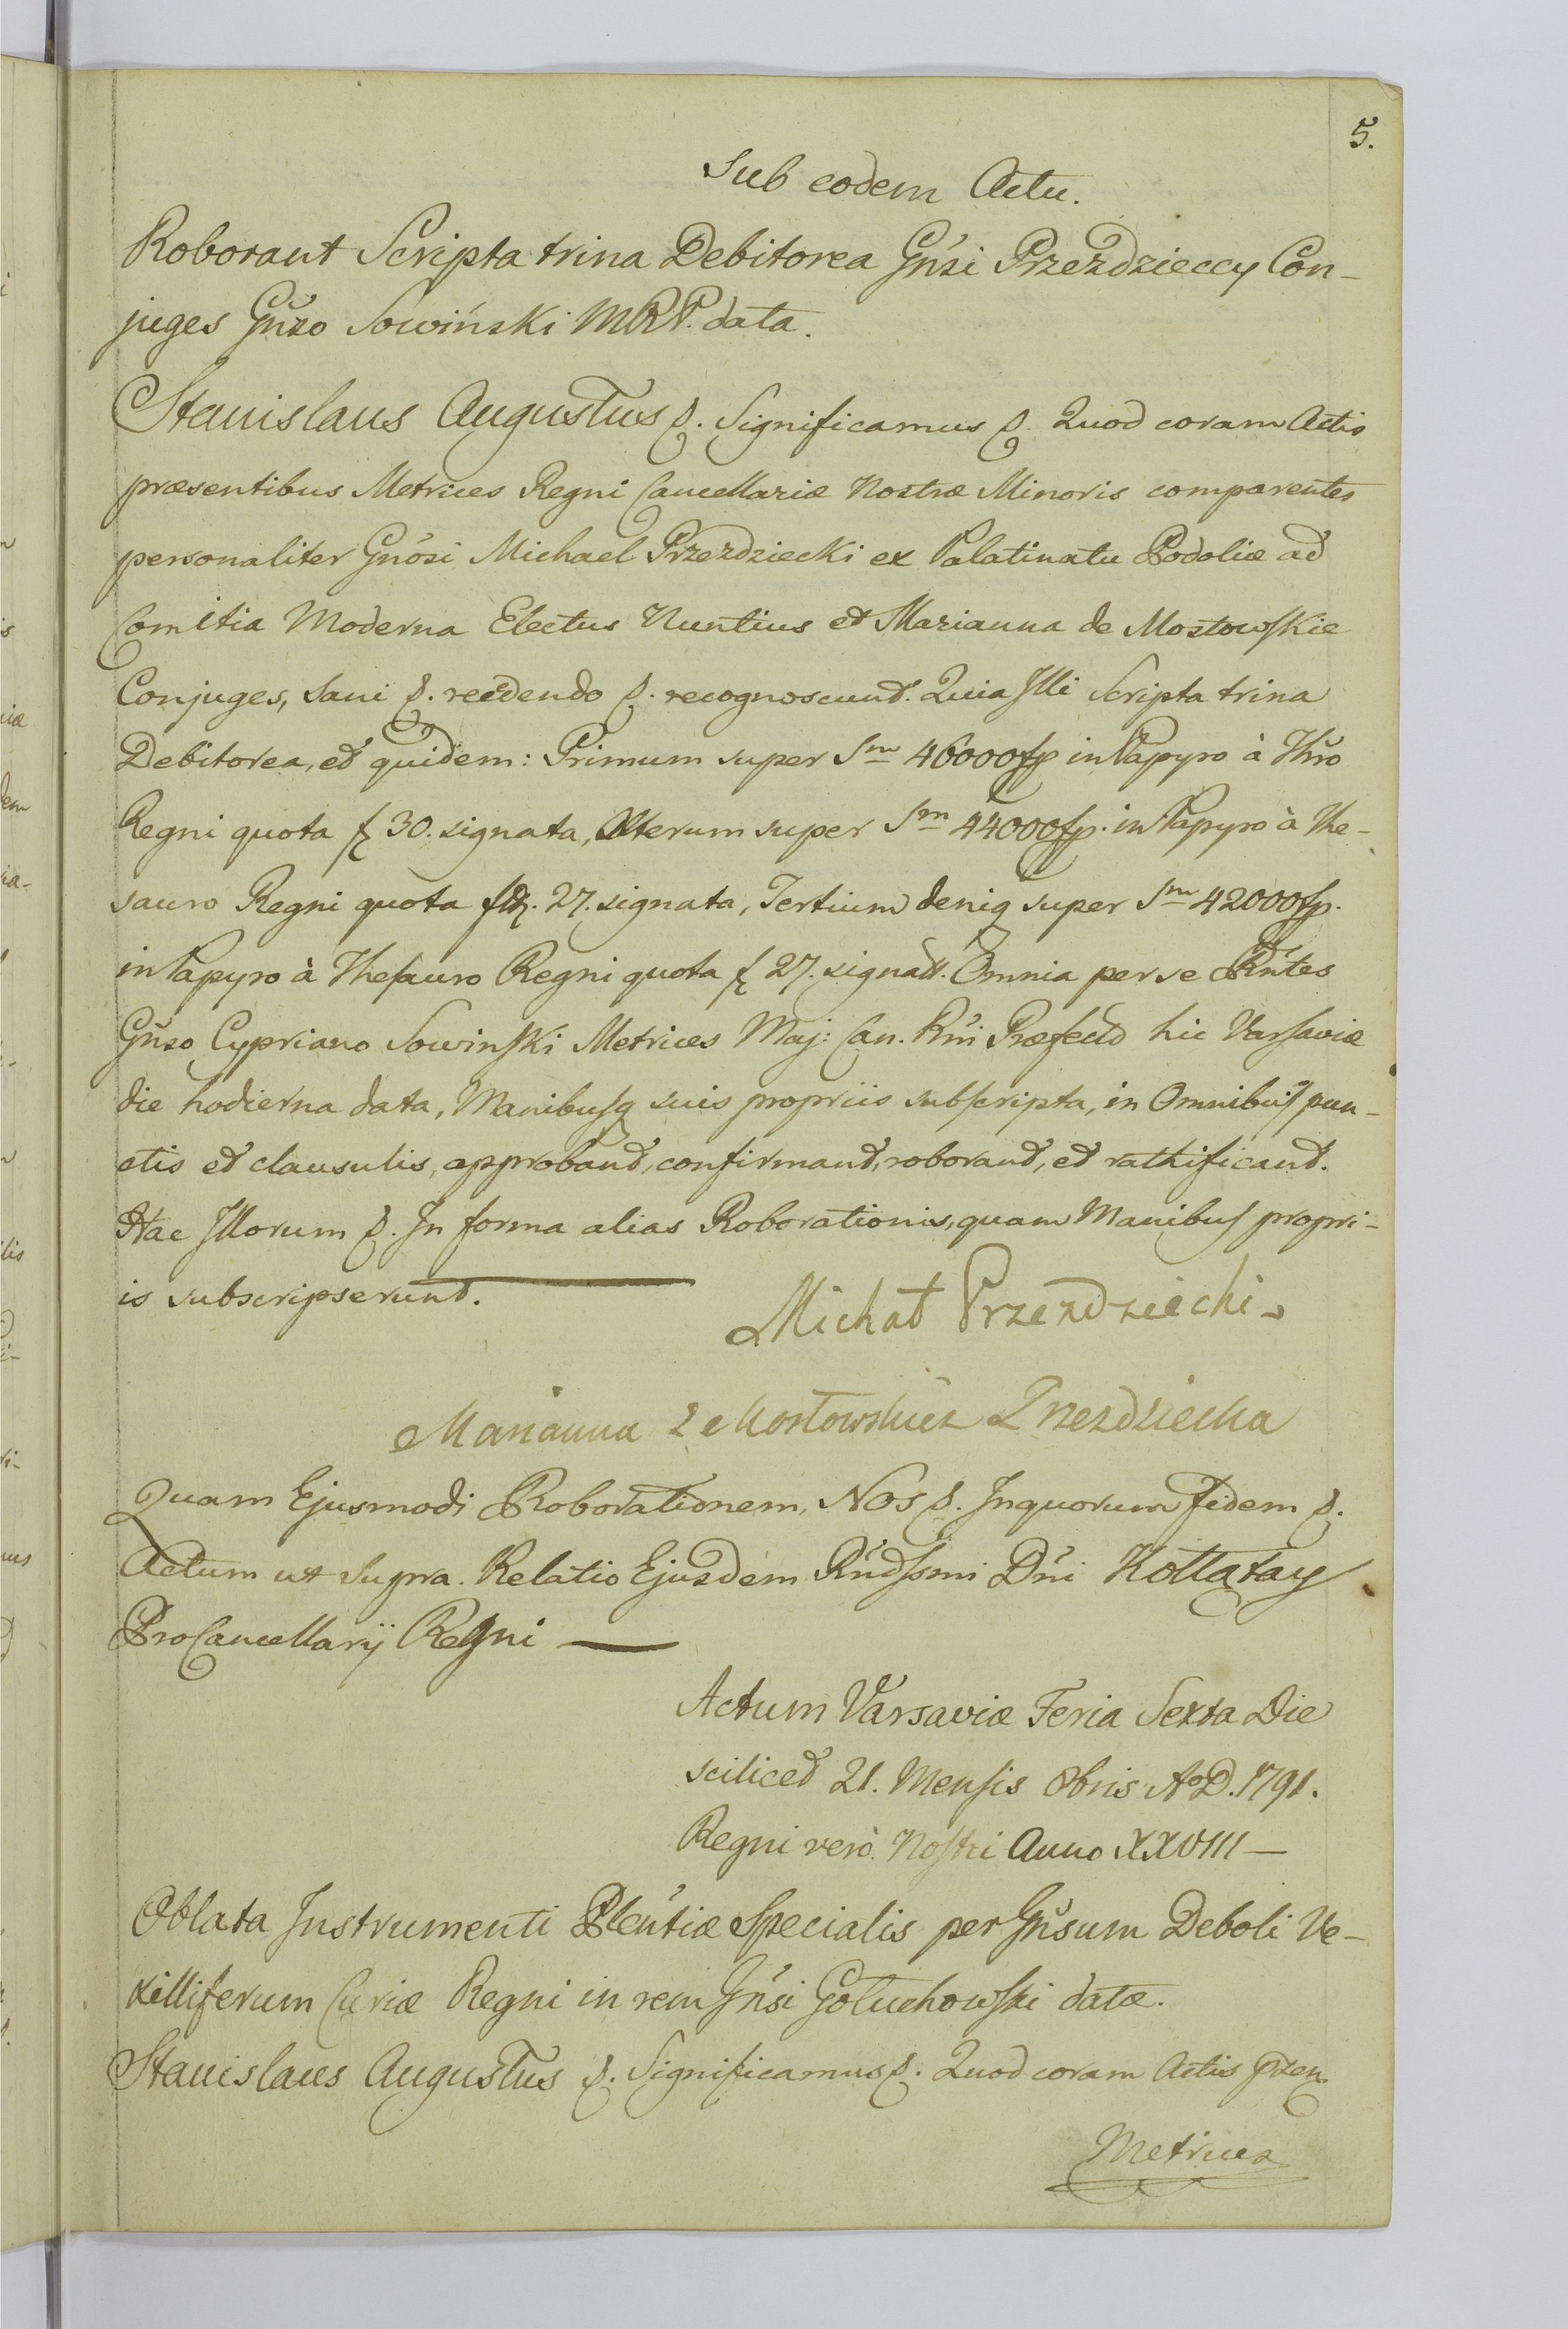 5.
Sub eodem Actu.
Roborant Scripta trina Debitorea Gńsi Przezdzieccy Con-
juges Gńso Sowiński MRP. data.
Stanislaus Augustus p. Significamus p. Quod coram Actis
præsentibus Metrices Regni Cancellariæ Nostræ Minoris comparentes
personaliter Gnósi Michael Przezdziecki ex Palatinatu Podoliæ ad
Comitia Moderna Electus Nuntius et Marianna de Mostowskie
Conjuges, Sani p. recedendo p. recognoscunt. Quia Illi Scripta trina
Debitorea, et quidem: Primum super Sm 46000 fp in Papyro à Thŕo
Regni quota f 30. signata, Alterum super Sm 44000 fp. in Papyro à The-
sauro Regni quota 27. signata, Tertium deniq super Sm 42000 fp.
in Papyro à Thesauro Regni quota f 27. signatt. Omnia per se Rńtes
Gńso Cypriano Sowinski Metrices Maj: Can. Rńi Præfecto hic Varsaviæ
die hodierna data, Manibusq suis propriis subscripta, in Omnibus pun-
ctis et clausulis, approband, confirmand, roborand, et rathificand.
Hac Illorum p. In forma alias Roborationis, quam Manibus propri-
is subscripserunt.
Michał Przezdziecki
Marianna z Mostowskich Przezdziecka
Quam Ejusmodi Roborationem, Nos p. In quorum Fidem p.
Actum ut Supra. Relatio Ejusdem Rńdssmi Dńi Kołłątay
ProCancellarij Regni
Actum Varsaviæ Feria Sexta Die
scilicet 21. Mensis 8bris AoD. 1791.
Regni verò Nostri Anno XXVIII
Oblata Instrumenti Plentiæ Specialis per Gńsum Deboli Ve-
xilliferum Curiæ Regni in rem Gńsi Gołuchowski datæ.
Stanislaus Augustus p. Significamus p. Quod coram Actis pzen
Metrices